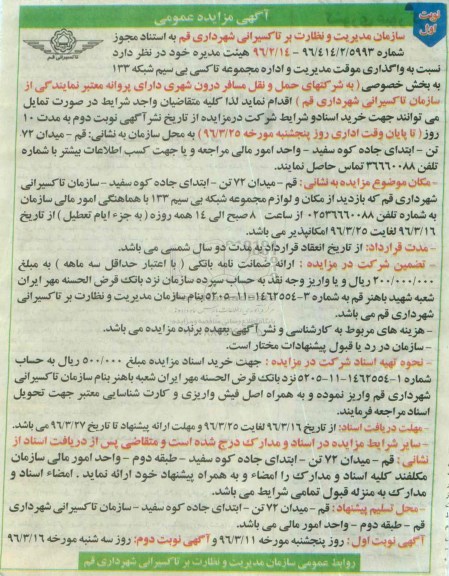 آگهی مزایده عمومی
نوبت اول
سازمان مدیریت و نظارت بر تاکسیرانی شهرداری قم به استناد مجوز
شماره ۹۶/۴۱۴/۲/۵۹۹۳ - ۹۶/۲/۱۴ هیئت مدیره خود در نظر دارد
نسبت به واگذاری موقت مدیریت و اداره مجموعه تاکسی بی سیم شبکه ۱۳۳
به بخش خصوصی ( به شرکتهای حمل و نقل مسافر درون شهری دارای پروانه معتبر نمایندگی از
سازمان تاکسیرانی شهرداری قم ) اقدام نماید لذا کلیه متقاضیان واجد شرایط در صورت تمایل
می توانند جهت خرید اسناد و شرایط شرکت در مزایده از تاریخ نشر آگهی نوبت دوم به مدت ۱۰
روز ( تا پایان وقت اداری روز پنجشنبه مورخه ۹۶/۳/۲۵ ) به محل سازمان به نشانی: قم - میدان ۷۲
تن - ابتدای جاده کوه سفید - واحد امور مالی مراجعه و یا جهت کسب اطلاعات بیشتر با شماره
تلفن ۳۶۶۶۰۰۸۸ تماس حاصل نمایند.
- مکان موضوع مزایده به نشانی: قم - میدان ۷۲ تن - ابتدای جاده کوه سفید - سازمان تاکسیرانی
شهرداری قم که بازدید از مکان و لوازم مجموعه شبکه بی سیم ۱۳۳ با هماهنگی امور مالی سازمان
به شماره تلفن ۰۲۵۳۶۶۶۰۰۸۸ از ساعت ۸ صبح الی ۱۴ همه روزه ( به جزء ایام تعطیل ) از تاریخ
۹۶/۳/۱۶ لغایت ۹۶/۳/۲۵ امکانپذیر می باشد.
- مدت قرارداد: از تاریخ انعقاد قرارداد به مدت دو سال شمسی می باشد.
- تضمین شرکت در مزایده : ارائه ضمانت نامه بانکی ( با اعتبار حداقل سه ماهه ) به مبلغ
۲۰۰/۰۰۰/۰۰۰ ریال و یا واریز وجه نقد به حساب سپرده سازمان نزد بانک قرض الحسنه مهر ایران
شعبه شهید باهنر قم به شماره ۳-۱۴۶۲۵۵۴-۱۱-۵۲۰۵ بنام سازمان مدیریت و نظارت بر تاکسیرانی
شهرداری قم می باشد.
- هزینه های مربوط به کارشناسی و نشر آگهی بعهده برنده مزایده می باشد.
- سازمان در رد یا قبول پیشنهادات مختار است.
- نحوه تهیه اسناد شرکت در مزایده : جهت خرید اسناد مزایده مبلغ ۵۰۰/۰۰۰ ریال به حساب
شماره ۱-۱۴۶۲۵۵۴-۱۱-۵۲۰۵ نزد بانک قرض الحسنه مهر ایران شعبه باهنر بنام سازمان تاکسیرانی
شهرداری قم واریز نموده و به همراه اصل فیش واریزی و کارت شناسایی معتبر جهت تحویل
اسناد مراجعه فرمایند.
- مهلت دریافت اسناد: از تاریخ ۹۶/۳/۱۶ لغایت ۹۶/۳/۲۵ و مهلت ارائه پیشنهاد تا تاریخ ۹۶/۳/۲۷ می باشد.
- سایر شرایط مزایده در اسناد و مدارک درج شده است و متقاضی پس از دریافت اسناد از
نشانی : قم - میدان ۷۲ تن - ابتدای جاده کوه سفید - طبقه دوم - واحد امور مالی سازمان
مکلفند کلیه اسناد و مدارک را امضاء و به همراه پیشنهاد خود ارائه نماید . امضاء اسناد و
مدارک به منزله قبول تمامی شرایط می باشد.
- محل تسلیم پیشنهاد: قم - میدان ۷۲ تن - ابتدای جاده کوه سفید - سازمان تاکسیرانی شهرداری
قم - طبقه دوم - واحد امور مالی می باشد.
آگهی نوبت اول : روز پنجشنبه مورخه ۹۶/۳/۱۱ و آگهی نوبت دوم: روز سه شنبه مورخه ۹۶/۳/۱۶
روابط عمومی سازمان مدیریت و نظارت بر تاکسیرانی شهرداری قم